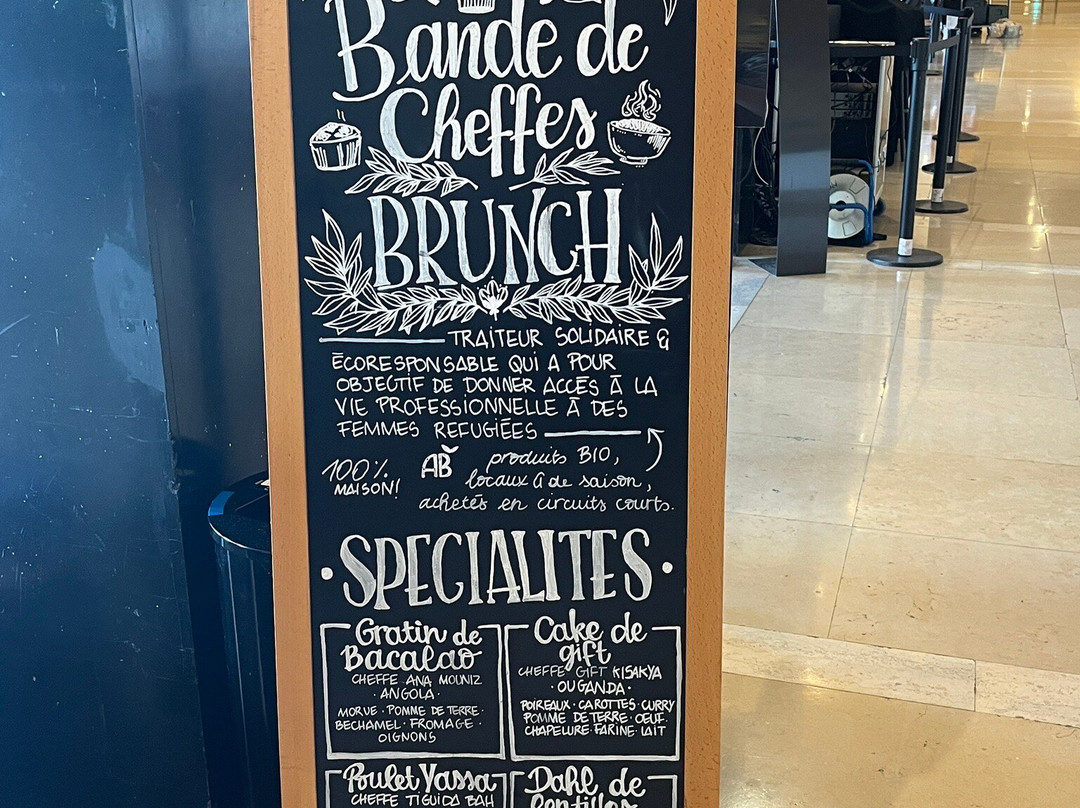 Bande de
Cheffes
BRUNCH
TRAITEUR SOLIDAIRE &
ÉCORESPONSABLE QUI A POUR
OBJECTIF DE DONNER ACCÈS À LA
VIE PROFESSIONNELLE À DES
FEMMES REFUGIÉES
100%
MAISON!
AB
produits BIO,
locaux & de saison,
achetés en circuits courts.
• SPECIALITES •
Gratin de
Bacalao
CHEFFE ANA MOUNIZ
· ANGOLA ·
MORUE · POMME DE TERRE ·
BECHAMEL · FROMAGE ·
OIGNONS
Cake de
gift
CHEFFE GIFT KISAKYA
· OUGANDA ·
POIREAUX · CAROTTES · CURRY
POMME DE TERRE · OEUF ·
CHAPELURE · FARINE · LAIT
Poulet Yassa
CHEFFE TIGUIDA BAH
Dahl de
lentilles